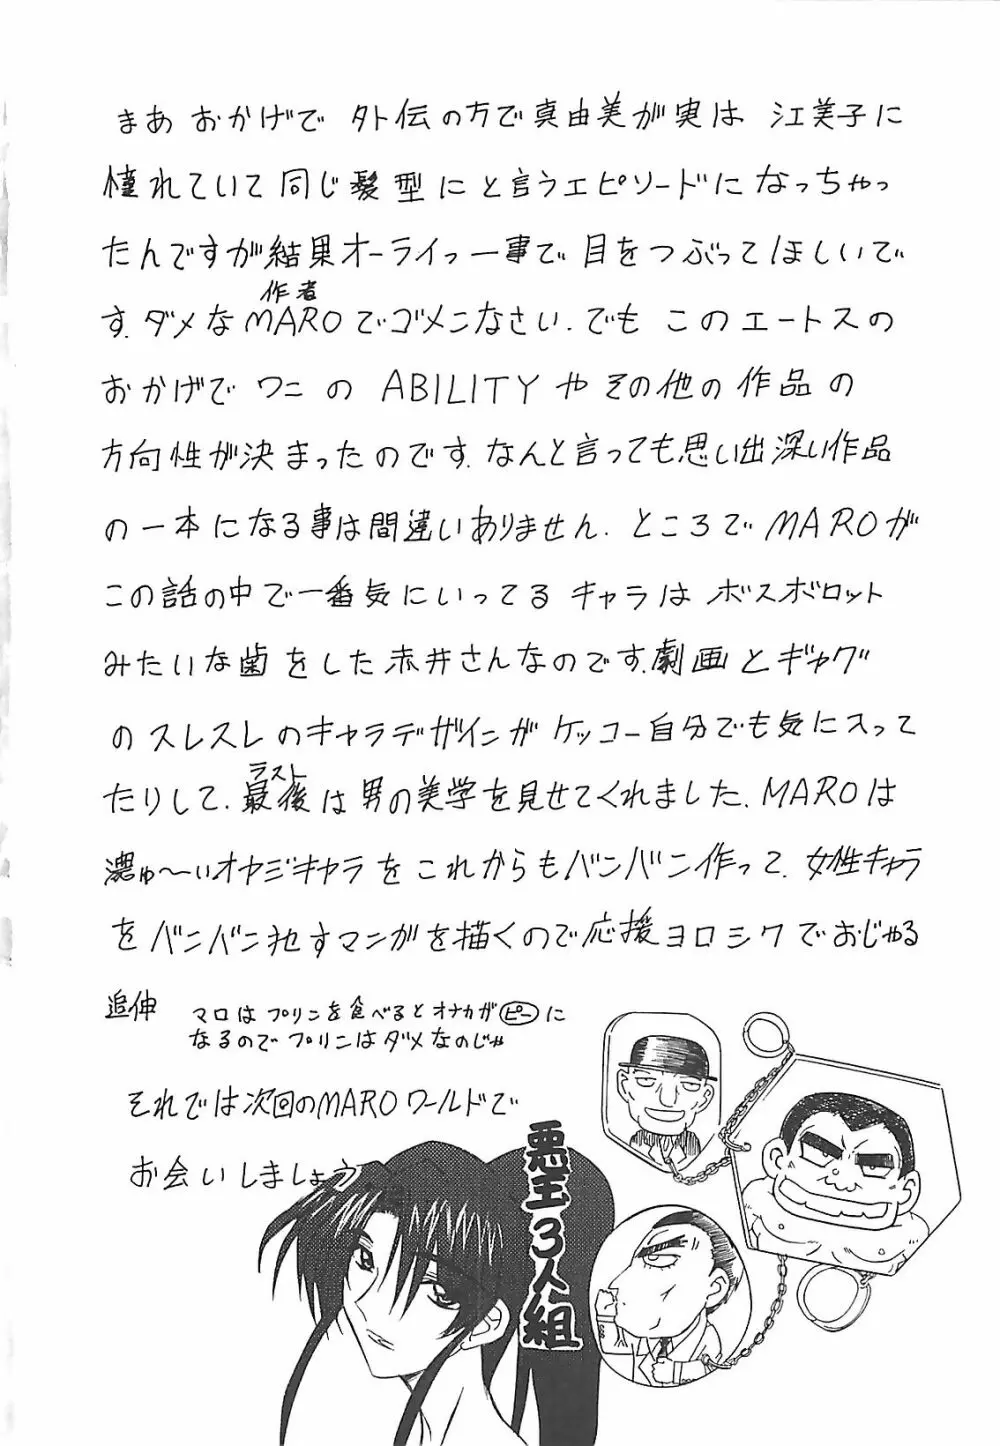 まあ おかげで 外伝の方で真由美が実は 江美子に
憧れていて同じ髪型にと言うエピソードになっちゃっ
たんですが結果オーライっー事で 目をつぶってほしいで
作者
す.ダメなMAROでゴメンなさい.でも このエートスの
おかげで ワニ の ABILITYや その他の 作品 の
方向性が決まったのです.なんと言っても思い出深い作品
の一本になる事は間違いありません.ところで MAROが
この話の中で一番気にいってる キャラは ボスボロット
みたいな歯をした赤井さんなのです.劇画とギャグ
のスレスレのキャラデザインがケッコー自分でも気に入って
ラスト
たりして.最後は男の美学を見せてくれました.MAROは
濃ゅ〜いオヤジキャラをこれからもバンバン作って.女性キャラ
をバンバン犯すマンガを描くので応援ヨロシクでおじゃる
追伸 マロはプリンを食べるとオナカがピーに
なるのでプリンはダメなのじゃ
それでは次回のMAROワールドで
お会いしましょう
悪玉3人組